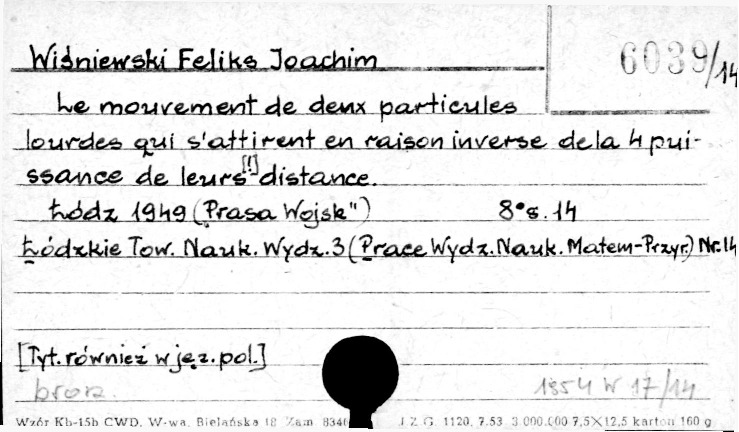 Wiśniewski Feliks Joachim
6039/14
Le mouvement de deux particules
lourdes qui s'attirent en raison inverse de la 4 pui-
ssance de leurs [!] distance.
Łódz 1949 ("Prasa Wojsk") 8° s. 14
Łódzkie Tow. Nauk. Wydz. 3 (Prace Wydz. Nauk. Matem-Przyr.) Nr. 14
[Tyt. również w jęz. pol.]
brosz. 1954 W 17/14
Wzór Kb-15b CWD, W-wa, Bielańska 18 Zam. 8340 J.Z.G. 1120. 7.53 3.000.000 7,5×12,5 karton 160 g